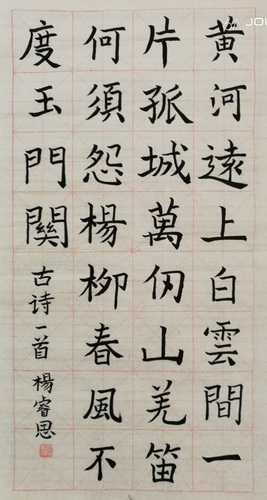 黄河遠上白雲間一
片孤城萬仞山羌笛
何須怨楊柳春風不
度玉門關
古诗一首 楊睿思